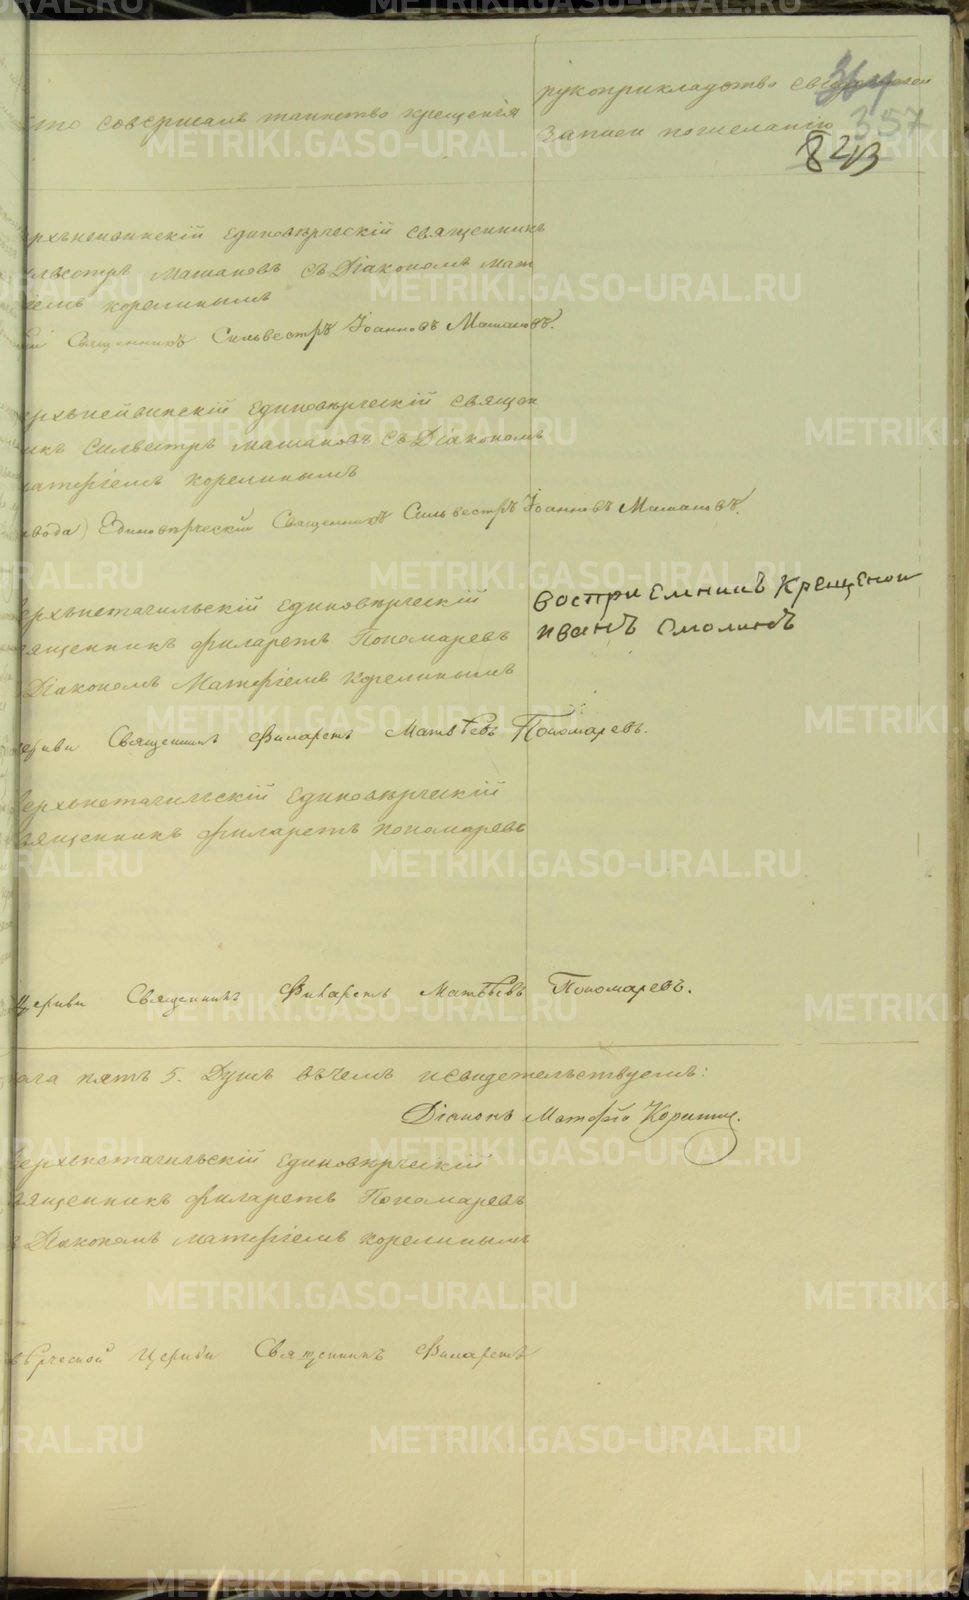 кто совершалъ таинство крещенія
рукоприкладство свидетелей
записи по желанію
364
357
843
рхъненвинскій единовѣрческій священникъ
ильвстръ Машановъ съ Діакономъ Мат
іемъ корелинымъ
Священникъ Сильвестръ Іоанновъ Машановъ.
ерхънейвинскій единовѣрческій священ
икъ Силвестръ машановъ съ Діакономъ
матфіемъ корелинымъ
авода) Единовѣрческій Священникъ Сильвестръ Іоанновъ Машановъ.
Верхънетагильскій единовѣрческій
вященникъ филаретъ Пономаревъ
Діакономъ Матфіемъ Корелинымъ
воспри Емникъ Крещеной
иванъ Смолинъ
Церкви Священникъ Филаретъ Матвѣевъ Пономаревъ.
Верхънетагилскій Единовѣрческій
вященникъ филаретъ пономаревъ
Церкви Священникъ Филаретъ Матвѣевъ Пономаревъ.
ола пять 5. Душъ въчемъ исвидетельствуемъ:
Діаконъ Матфій Корелин.
Верхънетагильскій Единовѣрческій
вященникъ филаретъ Пономаревъ
Діакономъ матфіемъ корелинымъ
вѣрческой Церкви Священникъ Филаретъ
METRIKI.GASO-URAL.RU